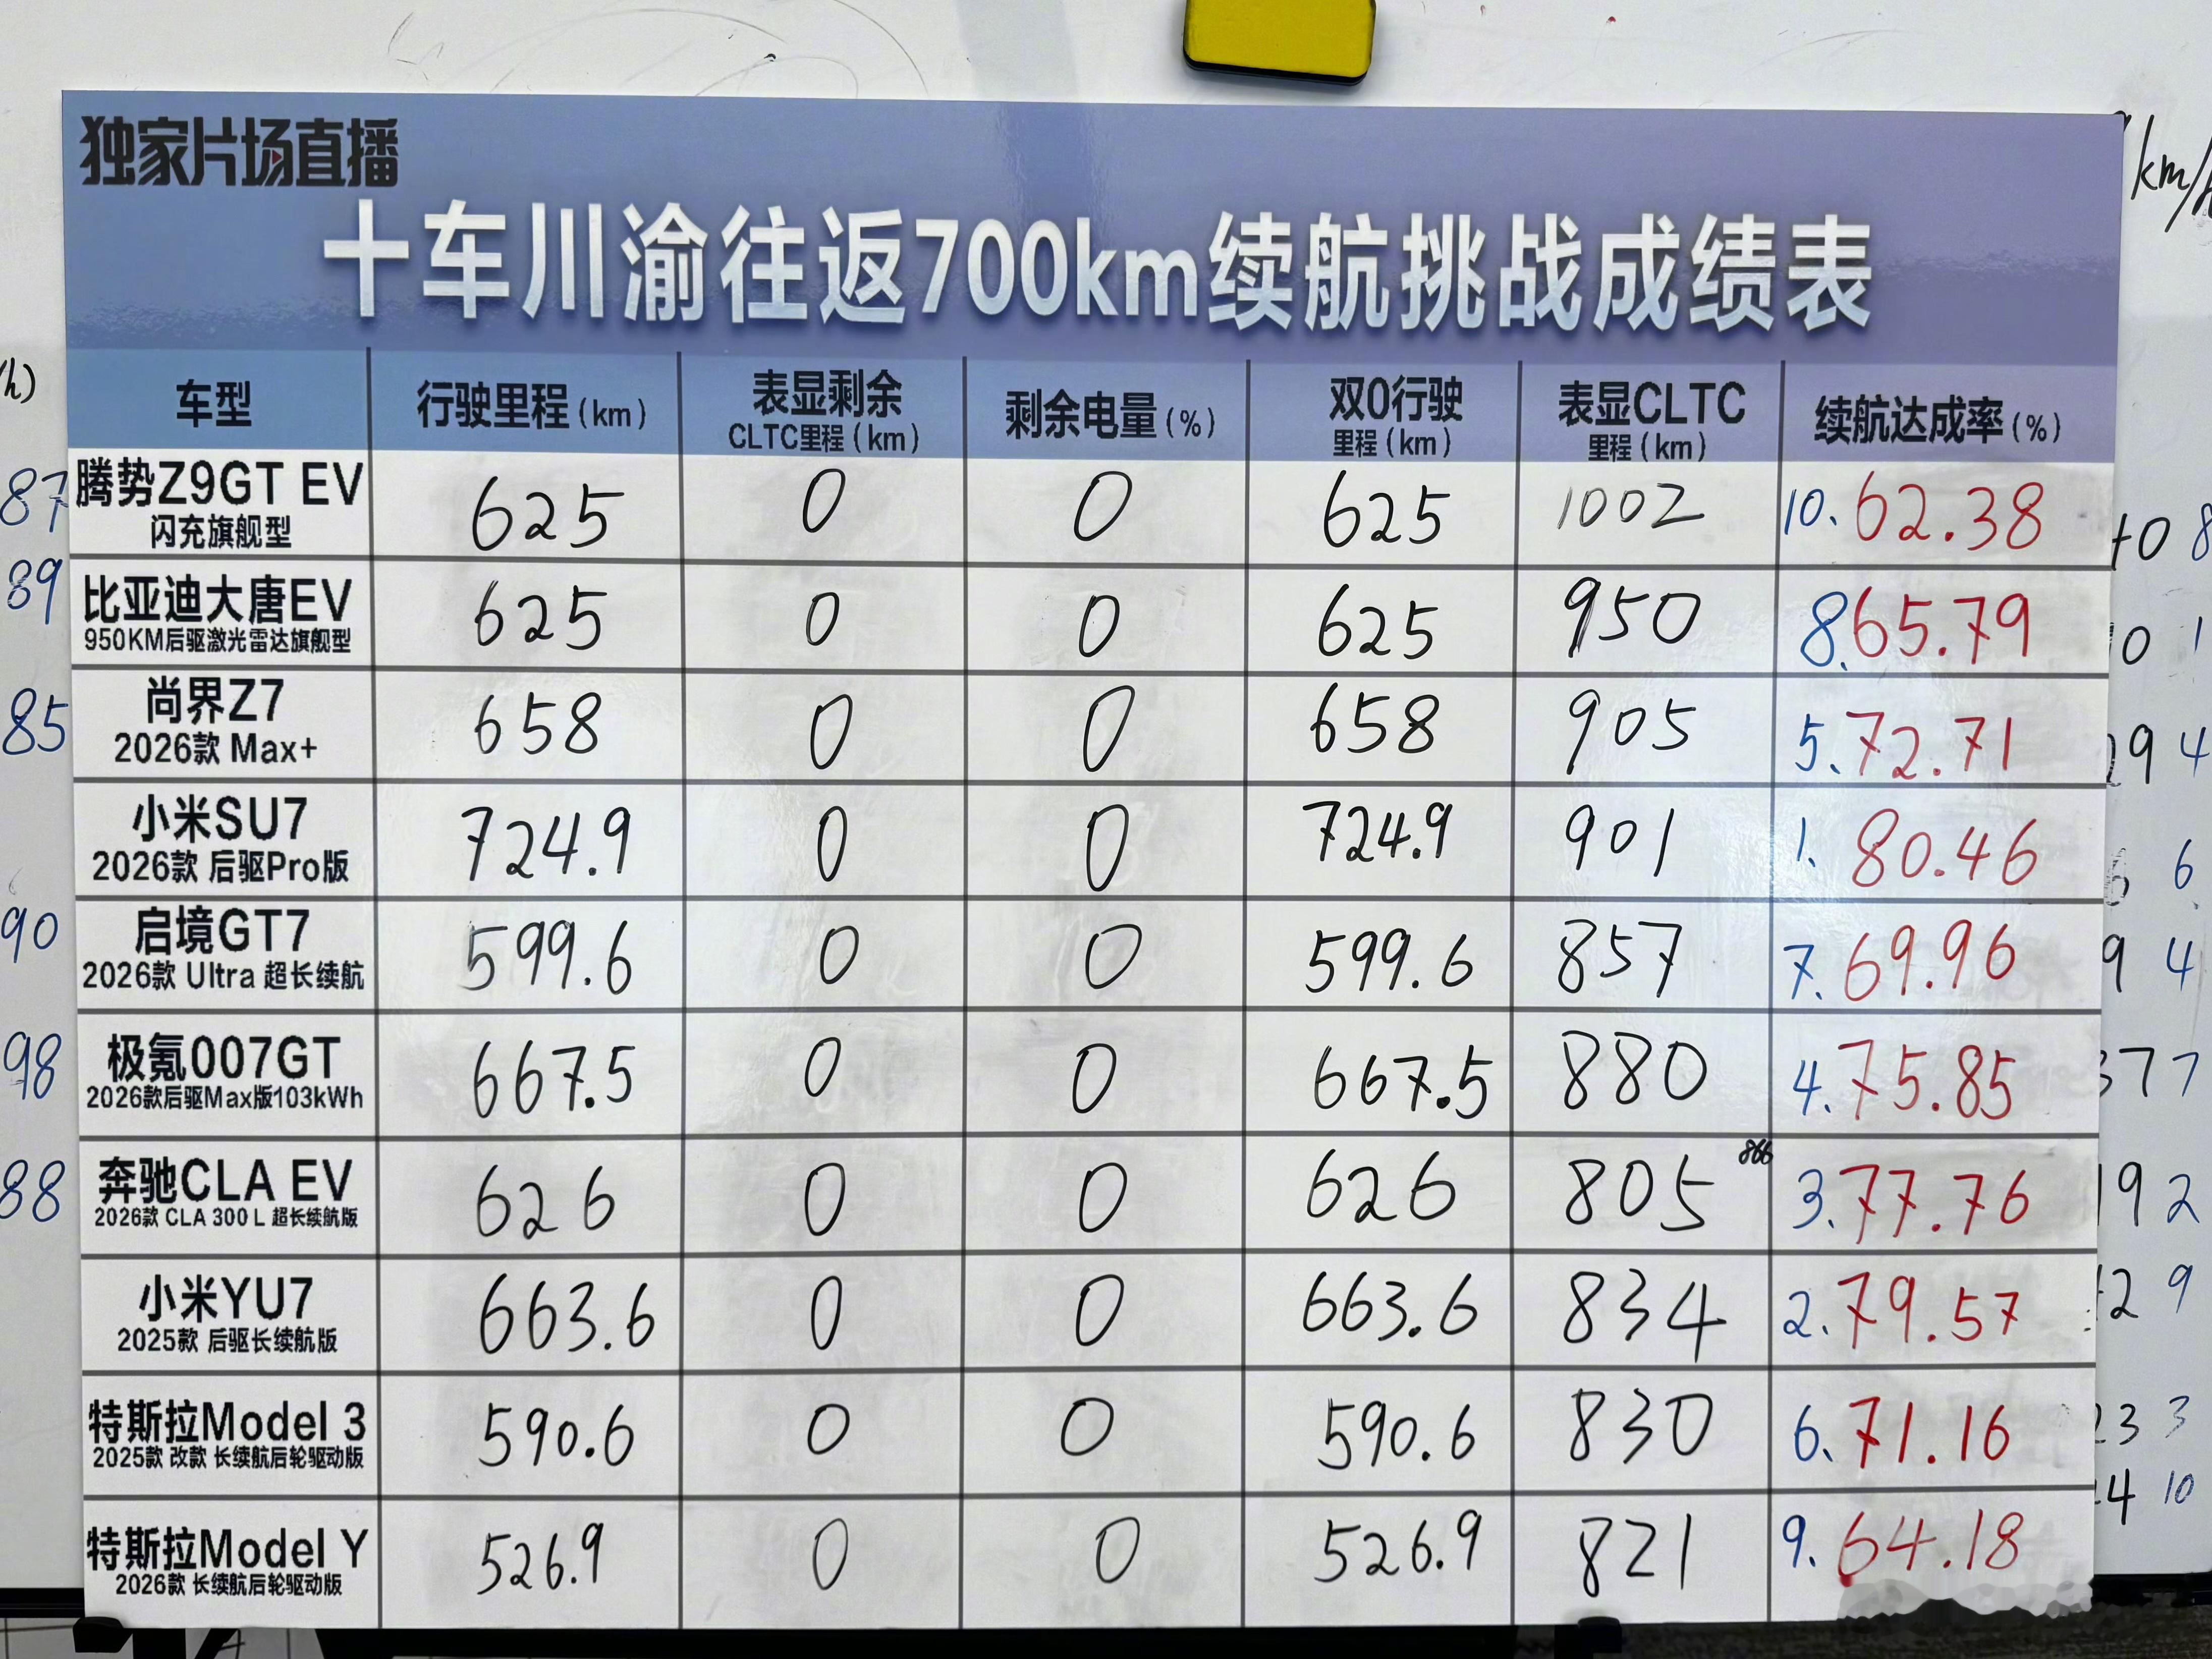 独家片场直播
十车川渝往返700km续航挑战成绩表
车型 行驶里程(km) 表显剩余CLTC里程(km) 剩余电量(%) 双0行驶里程(km) 表显CLTC里程(km) 续航达成率(%)
腾势Z9GT EV 625 0 0 625 1002 10. 62.38
闪充旗舰型
比亚迪大唐EV 625 0 0 625 950 8. 65.79
950KM后驱激光雷达旗舰型
尚界Z7 658 0 0 658 905 5. 72.71
2026款 Max+
小米SU7 724.9 0 0 724.9 901 1. 80.46
2026款 后驱Pro版
启境GT7 599.6 0 0 599.6 857 7. 69.96
2026款 Ultra 超长续航
极氪007GT 667.5 0 0 667.5 880 4. 75.85
2026款后驱Max版103kWh
奔驰CLA EV 626 0 0 626 805 866 3. 77.76
2026款 CLA 300 L 超长续航版
小米YU7 663.6 0 0 663.6 834 2. 79.57
2025款 后驱长续航版
特斯拉Model 3 590.6 0 0 590.6 830 6. 71.16
2025款 改款 长续航后轮驱动版
特斯拉Model Y 526.9 0 0 526.9 821 9. 64.18
2026款 长续航后轮驱动版
87
89
85
90
98
88
km/
8
1
4
6
4
7
2
9
3
10